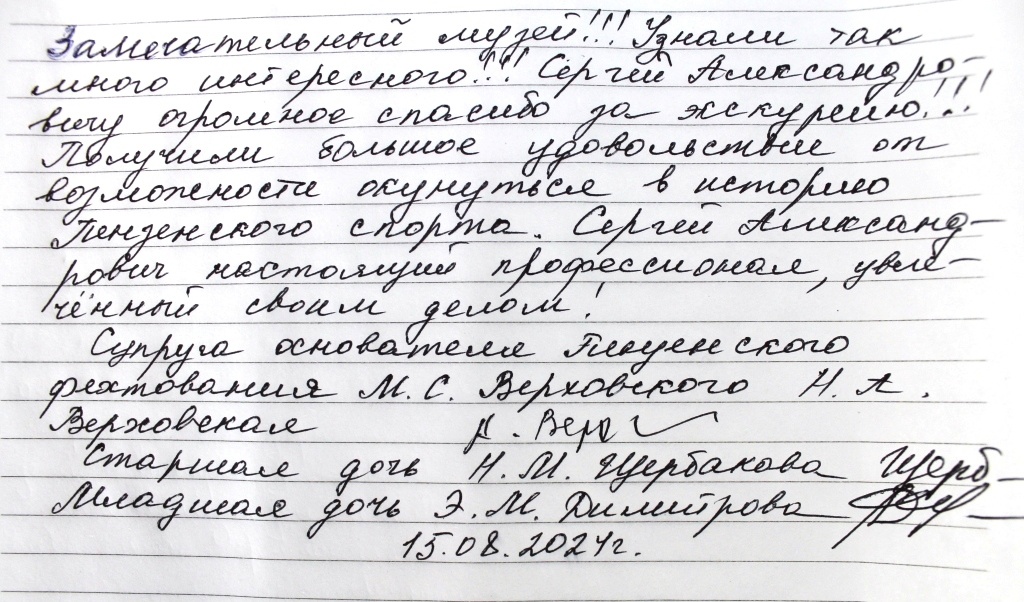 Замечательный музей!!! Узнали так
много интересного!!! Сергей Александро-
вичу огромное спасибо за экскурсию!!!
Получили большое удовольствие от
возможности окунуться в историю
Пензенского спорта. Сергей Александ-
рович настоящий профессионал, увле-
чённый своим делом!
Супруга основателя Пензенского
фехтования М.С. Верховского Н.А.
Верховская
Старшая дочь Н.М. Щербакова Щерб-
Младшая дочь Э.М. Димитрова
15.08.2024г.